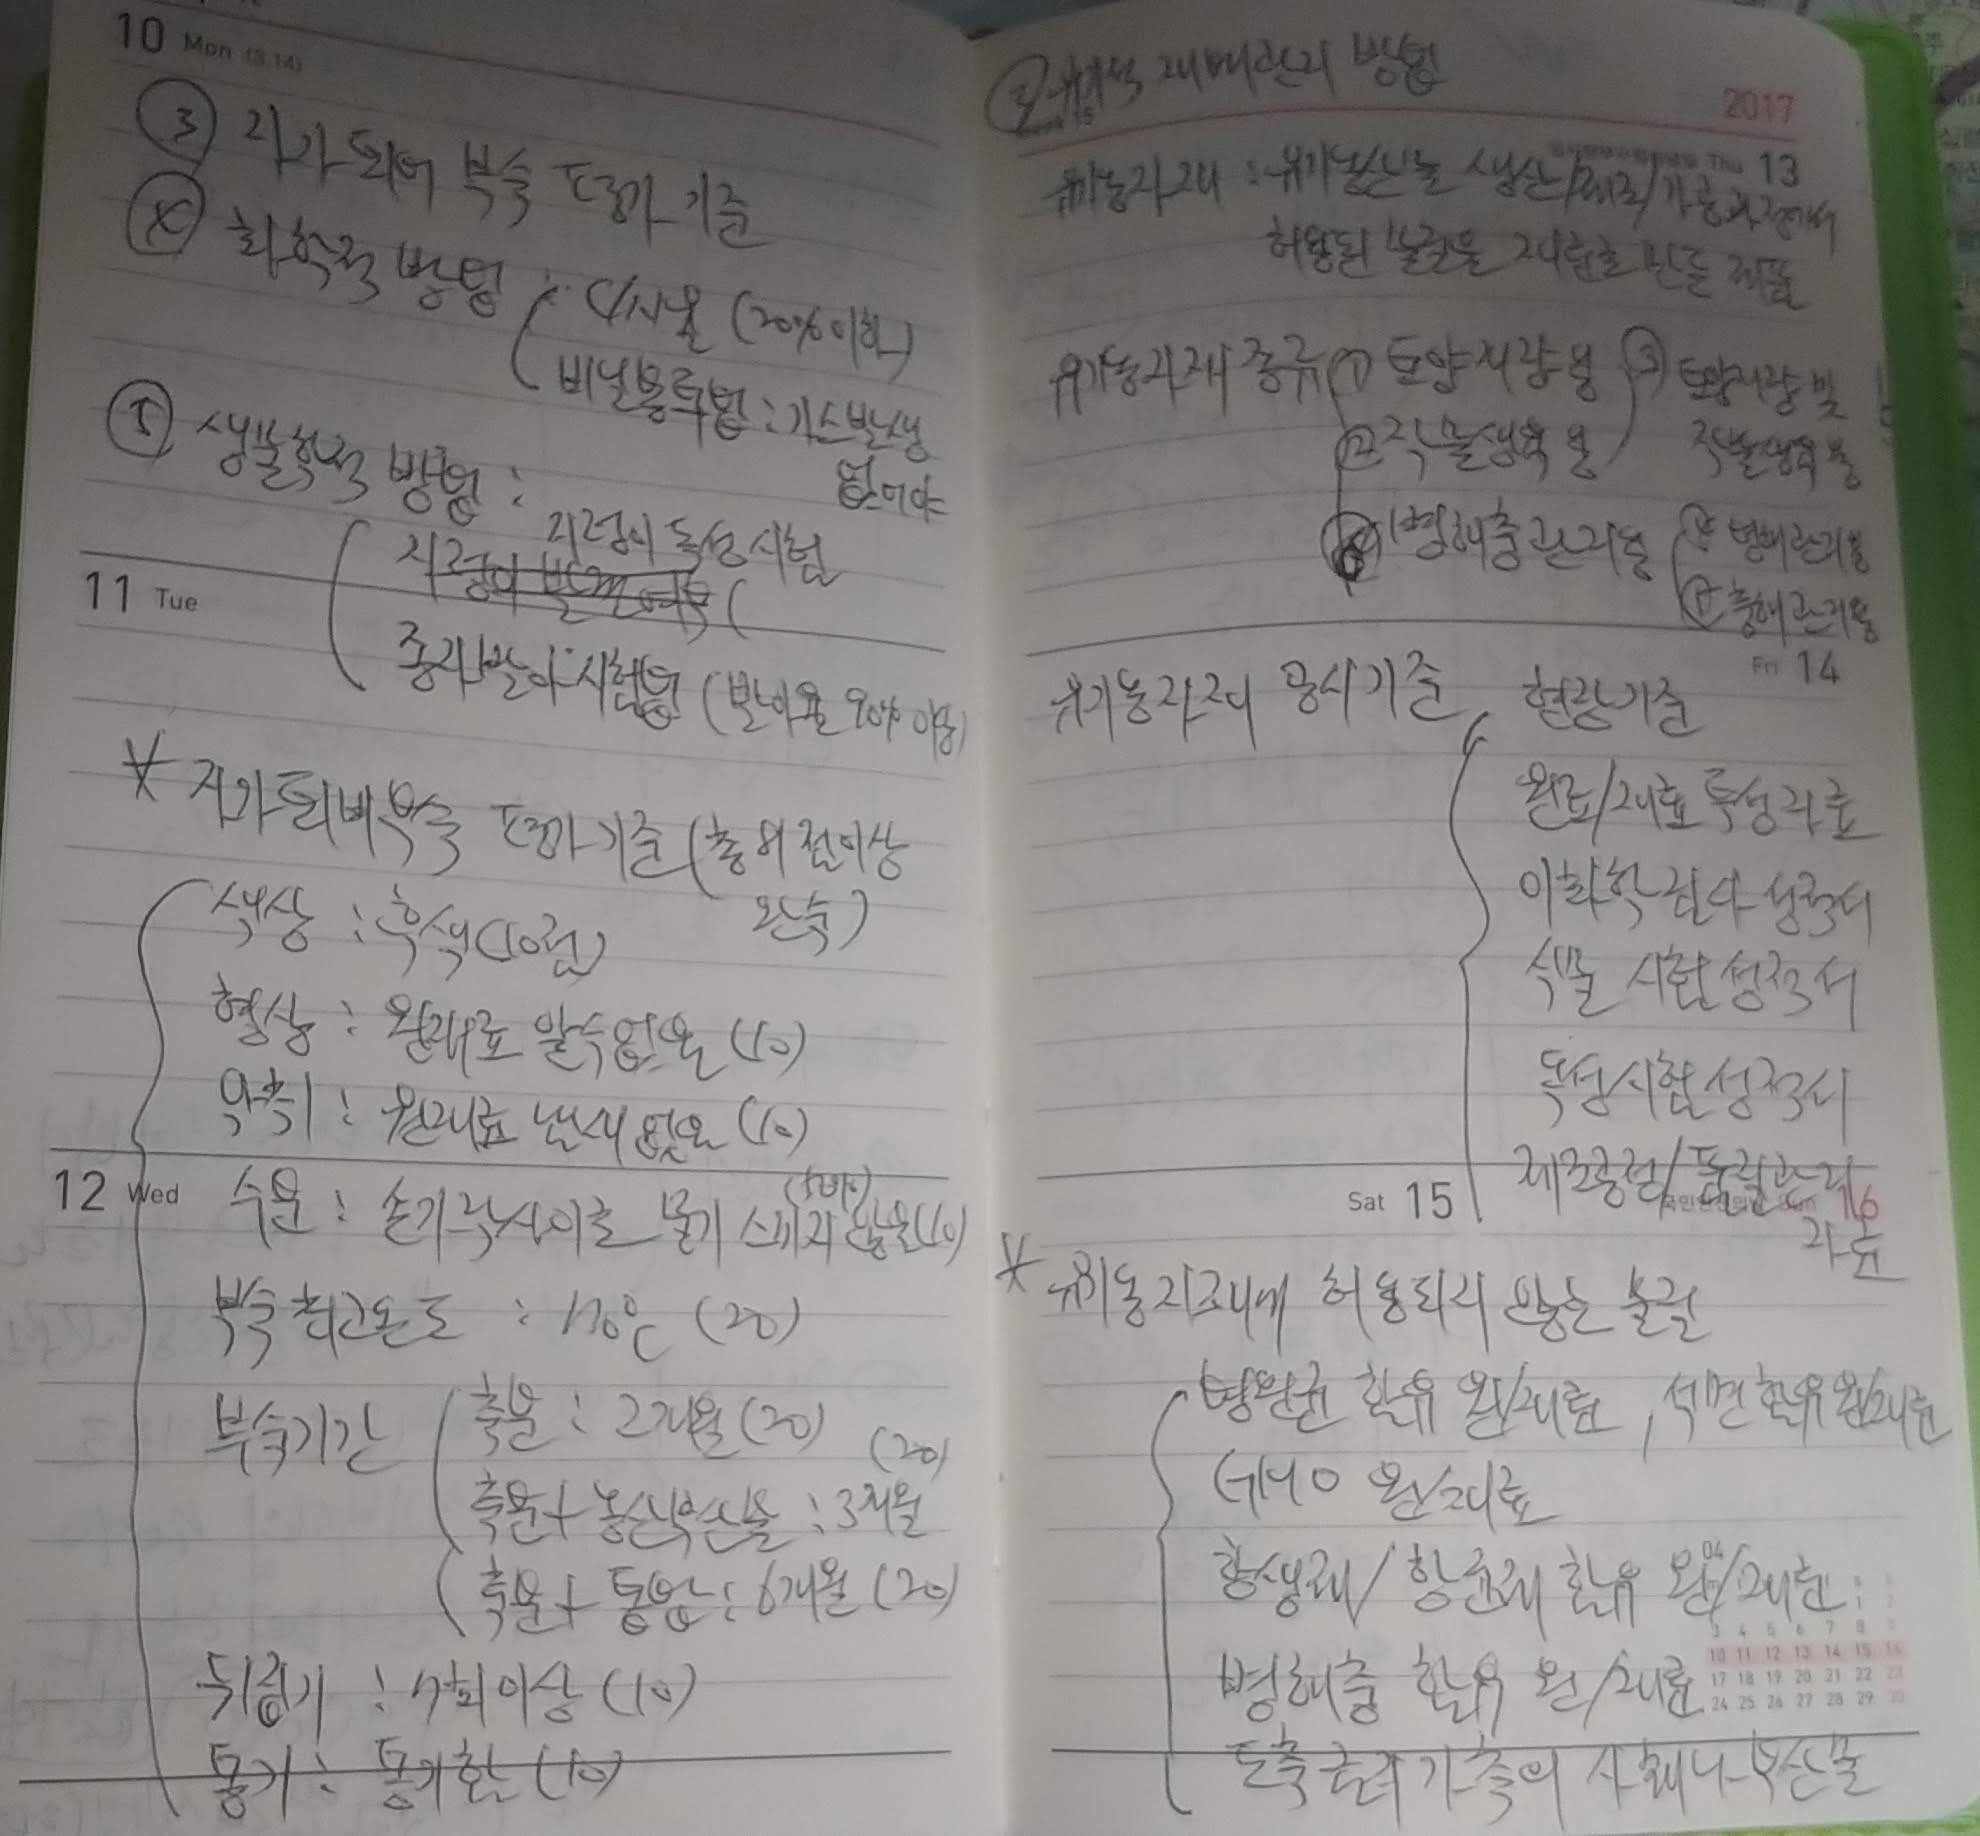 10 Mon (3.14)
③ 자가 퇴비 부숙 평가 기준
화학적 방법 : C/N율 (20% 이하)
비닐봉투법 : 가스발생
없어야
생물학적 방법 :
지렁이 독성시험
지렁이
11 Tue
종자발아 시험법 (발아율 90% 이상)
* 자가퇴비부숙 평가기준 (총 점이상
완숙)
색상 : 흑색 (10점)
형상 : 원재료 알수없음 (10)
악취 : 원재료 냄새 없음 (10)
12 Wed
수분 : 손가락사이로 물기 스미지 않음 (10)
부숙최고온도 : 70℃ (20)
부숙기간
축분 : 2개월 (20)
(20)
축분+농산부산물 : 3개월
축분+톱밥 : 6개월 (20)
뒤집기 : 7회이상 (10)
통기 : 통기함 (10)
② 유기적 재배관리 방법
2017
Thu 13
유기농자재 : 유기농산물 생산/제조/가공과정에서
허용된 물질을 재료로 만든 제품
유기농자재 종류 ① 토양개량용 ③ 토양개량 및
② 작물생육용 작물생육용
병해충관리용 병해관리용
충해관리용
Fri 14
유기농자재 공시기준 현장기준
원료/재료 특성자료
이화학검사 성적서
식물 시험성적서
독성시험성적서
제조공정/품질관리
Sat 15
16
자료
* 유기농자재에 허용되지 않는 물질
병원균 함유 원/재료, 석면 함유 원/재료
GMO 원/재료
항생제/항균제 함유 원/재료
04
3 4 5 6 7 8
병해충 함유 원/재료
10 11 12 13 14 15 16
17 18 19 20 21 22 23
24 25 26 27 28 29 30
도축 금지가축의 사체나 부산물